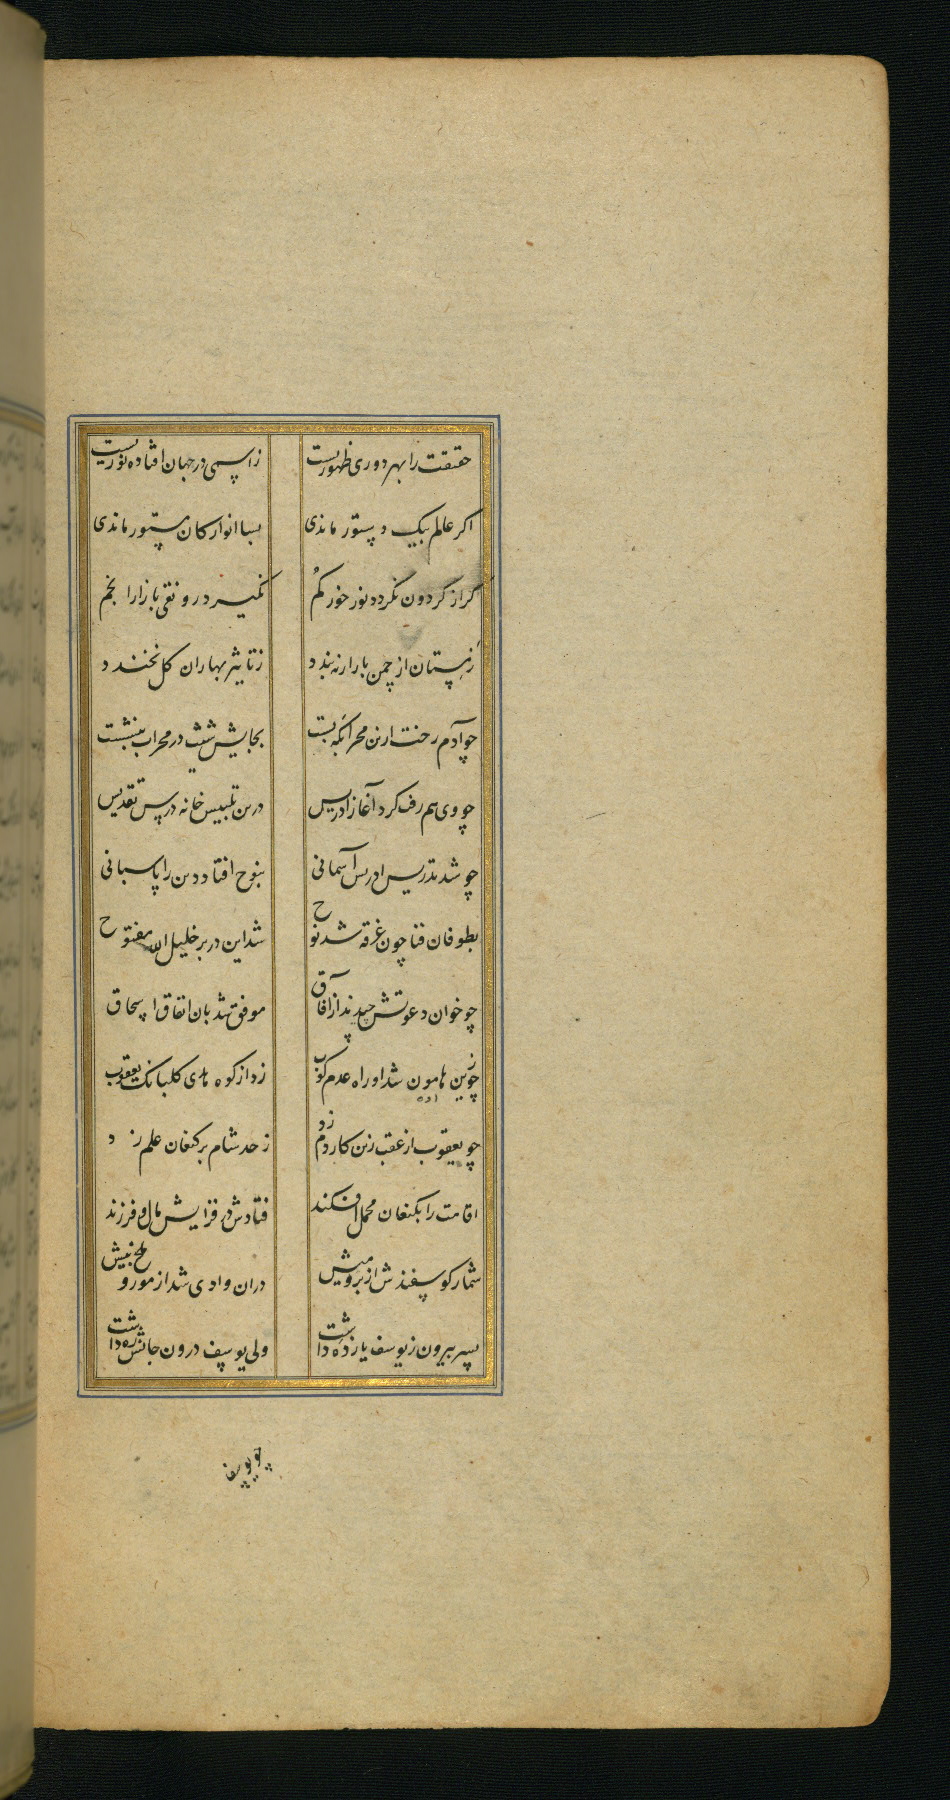 حقیقت را بهر دوری ظهوریست زاسمی در جهان افتاده نوریست
اکر عالم بیک دستور ماندی بسا انوار کان مستور ماندی
کر از کردون نکردد نور خور کم نکیرد رونقی بازار انجم
زمستان از چمن بار ار نه بندد ز تاثیر بهاران کل نخندد
چو آدم رخت ازین محرابکه بست بجایش شیث در محراب بنشست
چو وی هم رفت کرد آغاز ادریس درین تلبیس خانه درس تقدیس
چو شد تدریس ادریس آسمانی بنوح افتاد دین را پاسبانی
بطوفان فنا چون غرقه شد نوح شد این در بر خلیل الله مفتوح
چو خوان دعوتش چیدند از آفاق موفق شد بان انفاق اسحاق
چو زین هامون شد او راه عدم کوب زد از کوه هدی کلبانک یعقوب
چو یعقوب از عقب زین کار دم زد ز حد شام بر کنعان علم زد
اقامت را بکنعان محمل افکند فتادش در فزایش مال و فرزند
شمار کوسفندش از بز و میش دران وادی شد از مور و ملخ بیش
پسر بیرون ز یوسف یازده داشت ولی یوسف درون جانش ره داشت
چو یوسف